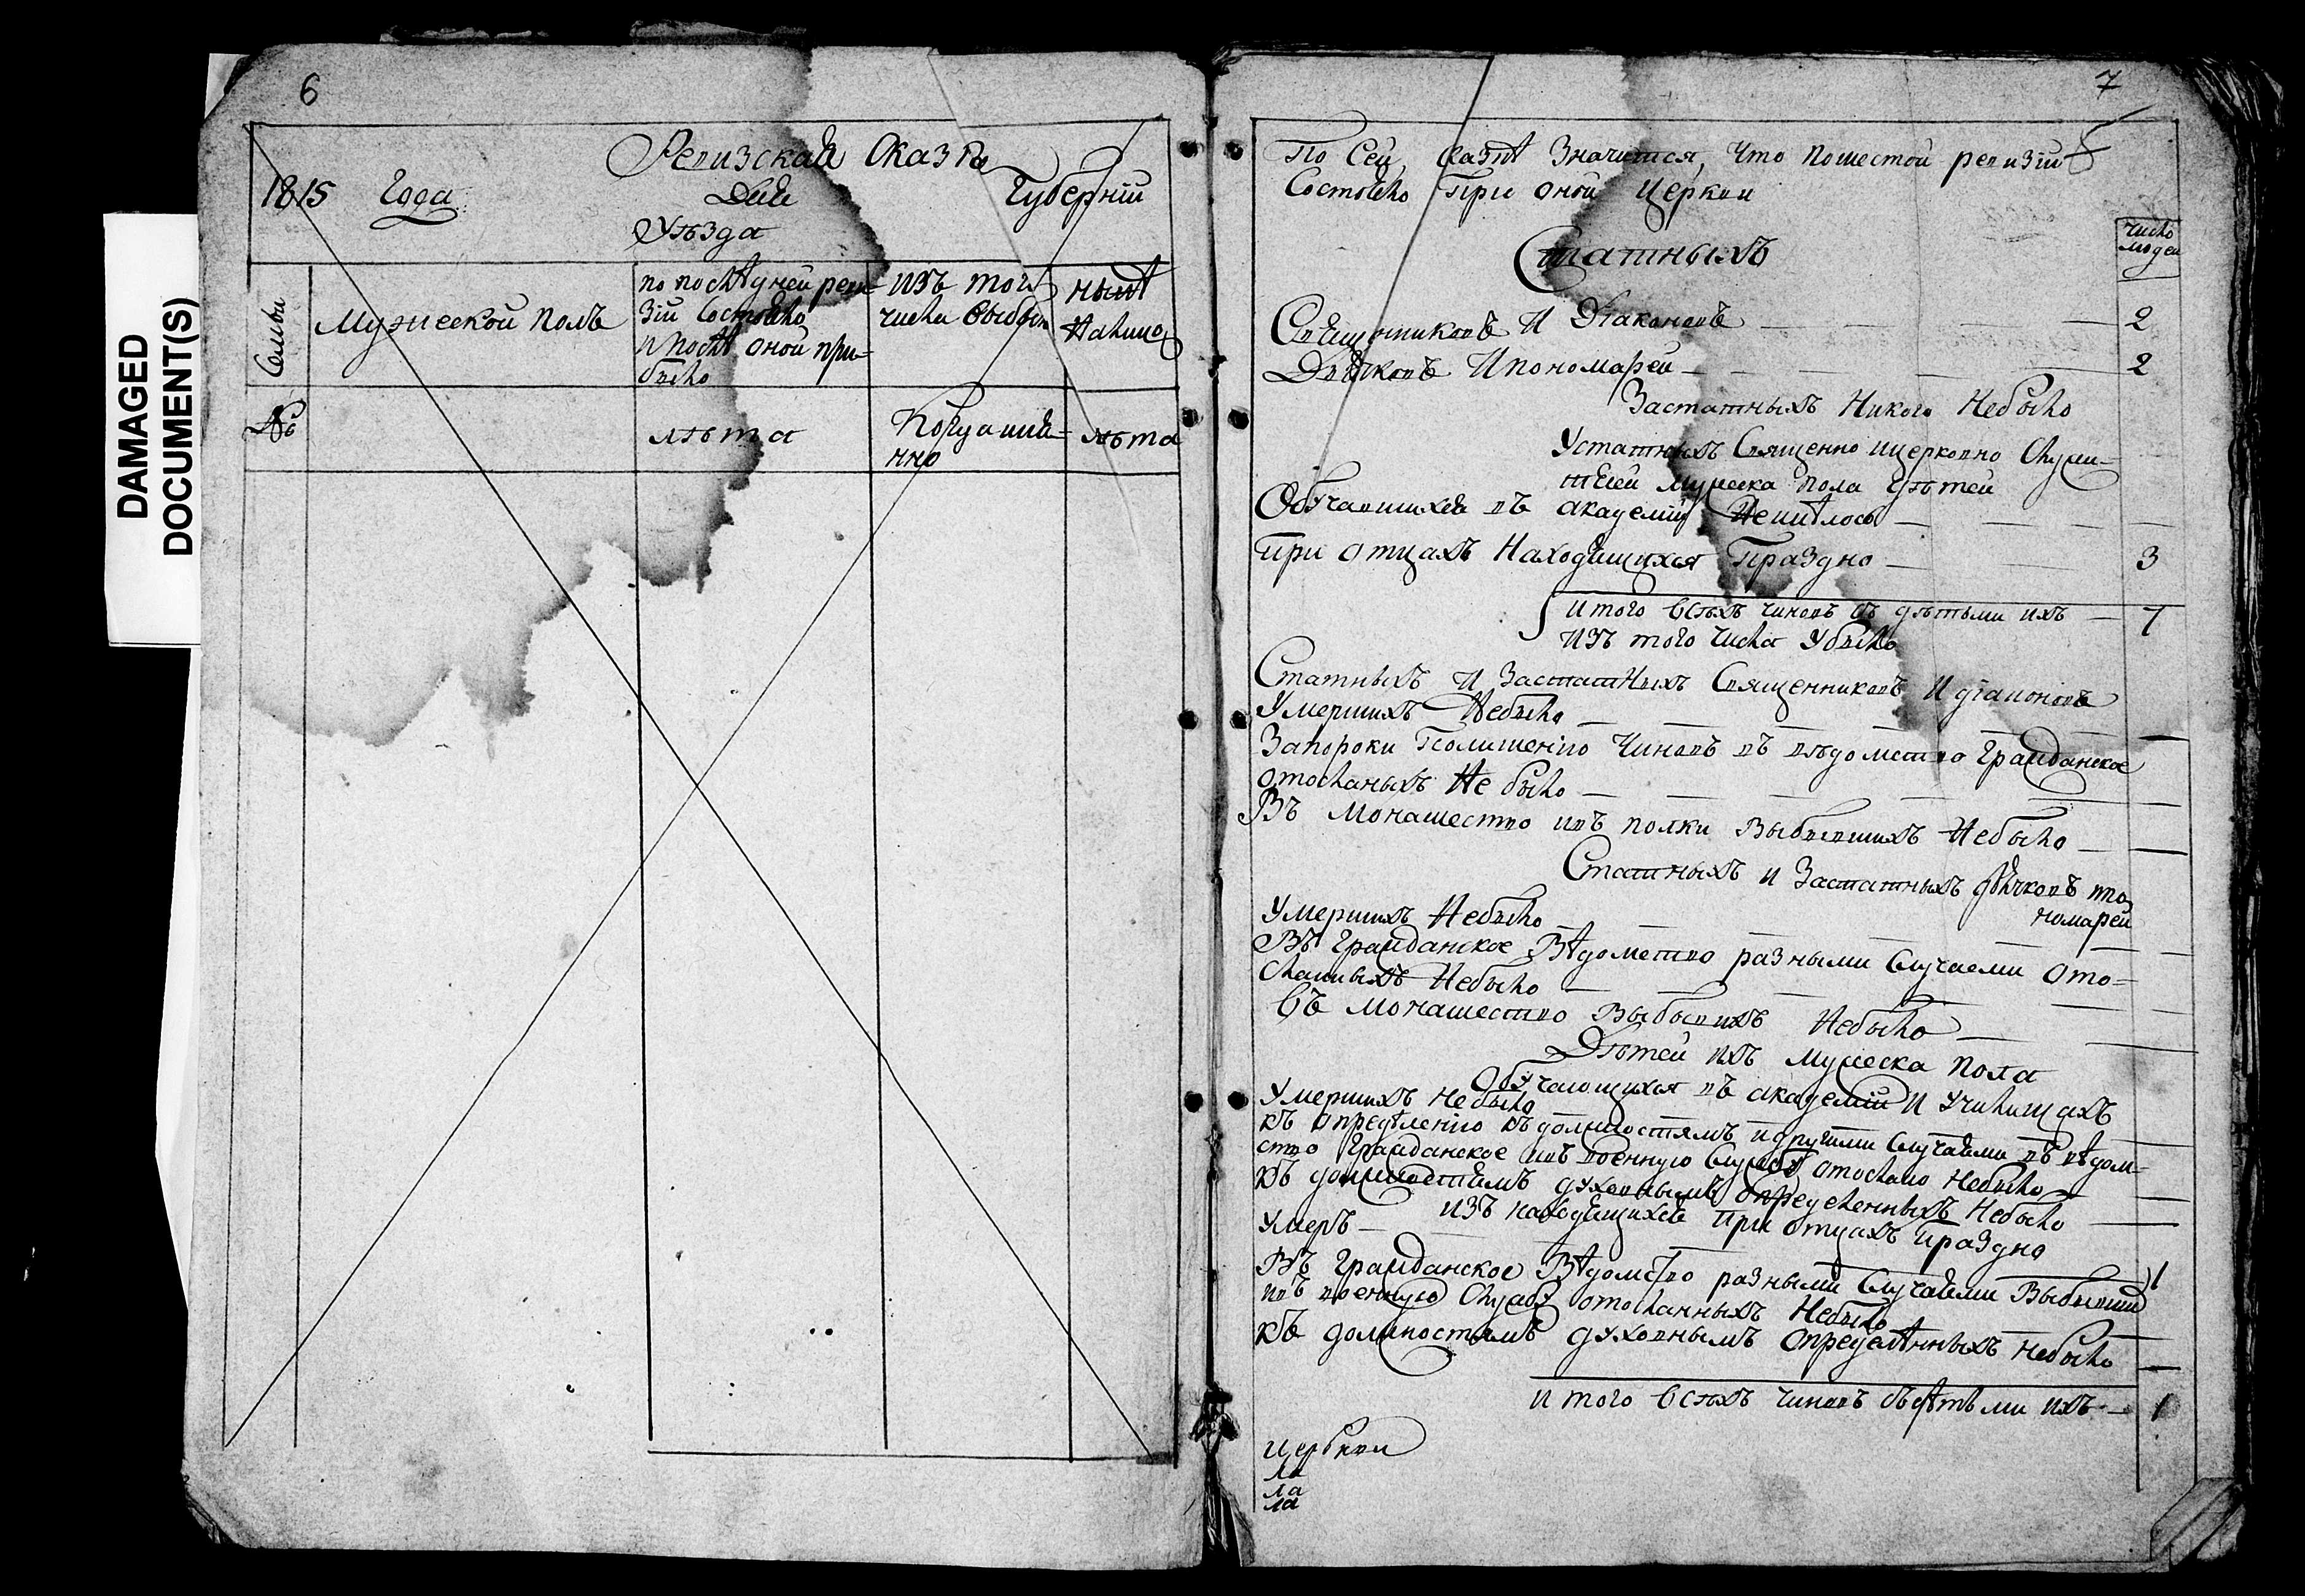 DAMAGED
DOCUMENT(S)
6
Ревизская Сказка
1815 Года Дня Губерніи
Уѣзда
Семьи
Мужеской полъ
по послѣдней реви-
зіи Состояло
и послѣ оной при-
было
изъ того
числа выбыло
нынѣ
налицо
№
лѣта
Когда имян-
нно
лѣта
7
По Сей Сказкѣ Значится, Что пошестой ревизіи
Состояло При оной Церкви
число
людей
Статныхъ
Священниковъ И Діаконовъ — 2
Дьячковъ И пономарей — 2
Застатныхъ Никого Небыло
Устатныхъ Священно ицерковно Служи-
телей мужеска пола дѣтей
Обучавшихся въ академіи Неимѣлось —
При отцахъ Находящихся Праздно — 3
Итого всѣхъ чиновъ съ дѣтьми ихъ — 7
Изъ того числа Убыло
Статныхъ И Застатныхъ Священниковъ И діаконовъ
Умершихъ Небыло —
Запороки Полишенію Чиновъ въ вѣдомство Гражданское
отосланыхъ Не было —
Въ Монашество ивъ полки Выбывшихъ Небыло —
Статныхъ и Застатныхъ дьячковъ ипо
номарей
Умершихъ Небыло —
Въ Гражданское Вѣдомство разными Случаеми ото-
сланныхъ Небыло —
Въ монашество Выбывшихъ Небыло —
Дѣтей ихъ мужеска пола
Обучающихся въ академіи И Училищахъ
Умершихъ небыло
къ опредѣленію къдолжностямъ идругими Случаями въ вѣдом-
ство Гражданское ивъ военную Службу отослано Небыло —
къ должностямъ духовнымъ определенныхъ Небыло —
изъ находящихся При отцахъ праздно
Умеръ — 1
Въ Гражданское Вѣдомство разными Случаями Выбывши
ивъ военную Службу отосланныхъ Небыло
къ должностямъ духовнымъ опредѣлѣнныхъ небыло —
Итого всѣхъ чиновъ съдѣтьми ихъ — 1
Церкви
ла
ла
ла